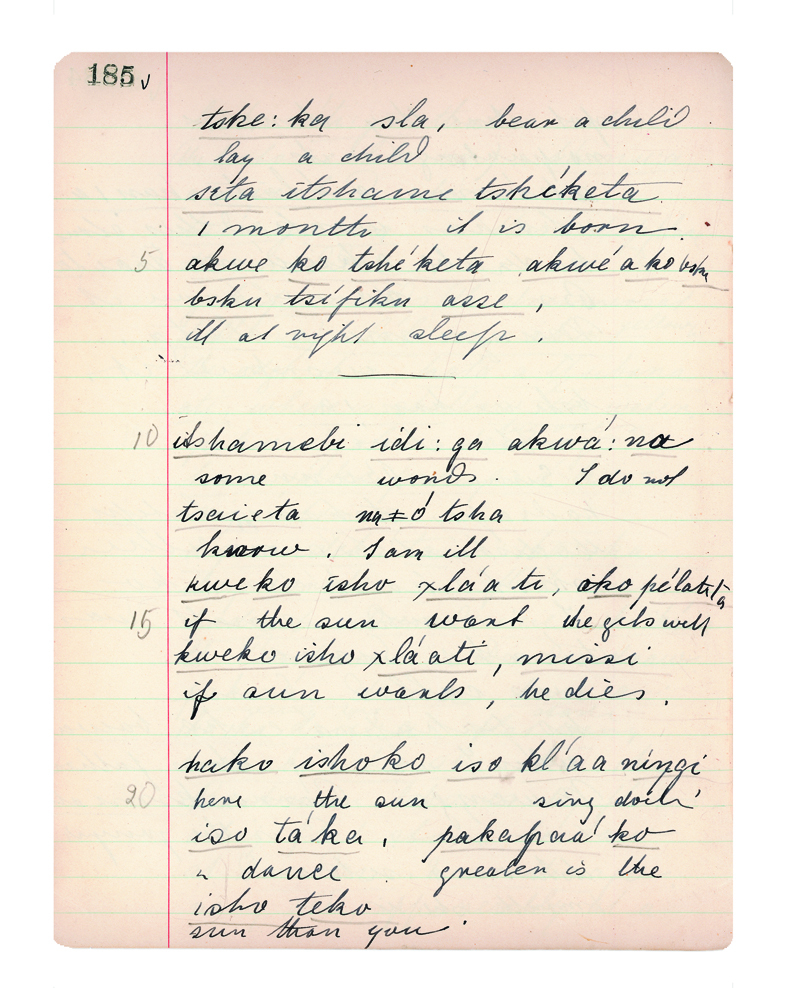 185 v
tske:ka sla, bear a child
lay a child
seta itshame tshéketa
1 month it is born.
5 akwe ko tshéketa akwé a ko bsku
bsku tsifiku asse,
ill at night sleep.
10 itshamebi idi:ga akwá:na
some words. I do not
tsaieta na≠ó tsha
know. I am ill
kweko isho xláa ti, ako pélatita
15 if the sun want he gets well
kweko isho xláati, missi
if sun wants, he dies.
hako ishoko iso kl'aa ningi
20 here the sun sing doth
iso táka, pakapaa'ko
" dance greater is the
isho teko
sun than you.